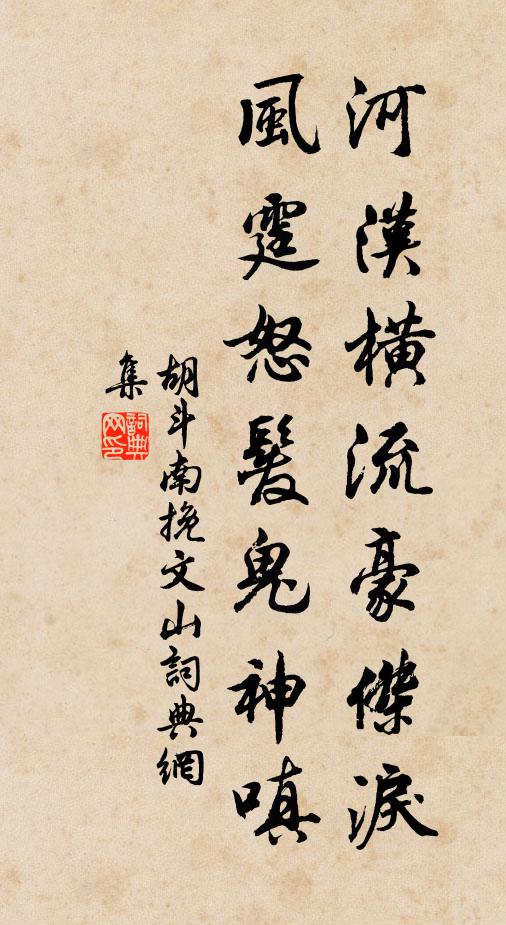 河漢橫流豪傑淚
風霆怒髮鬼神嗔
胡斗南挽文山詞典網
集
詞典
网印